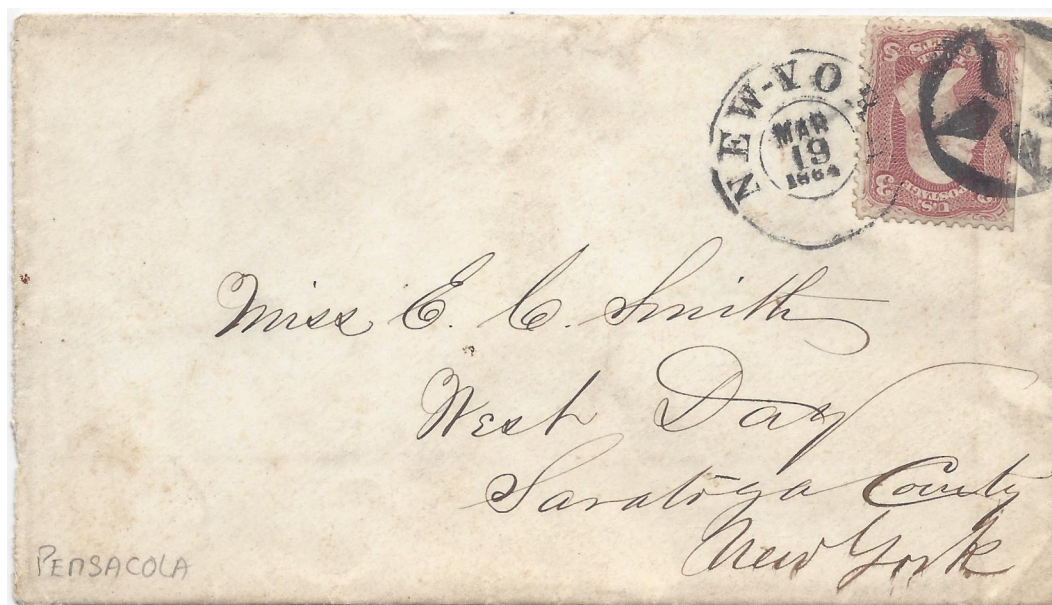 NEW-YO
MAR
19
1864
U.S.
POSTAGE
Miss E. C. Smith
West Day
Saratoga County
New York
PENSACOLA